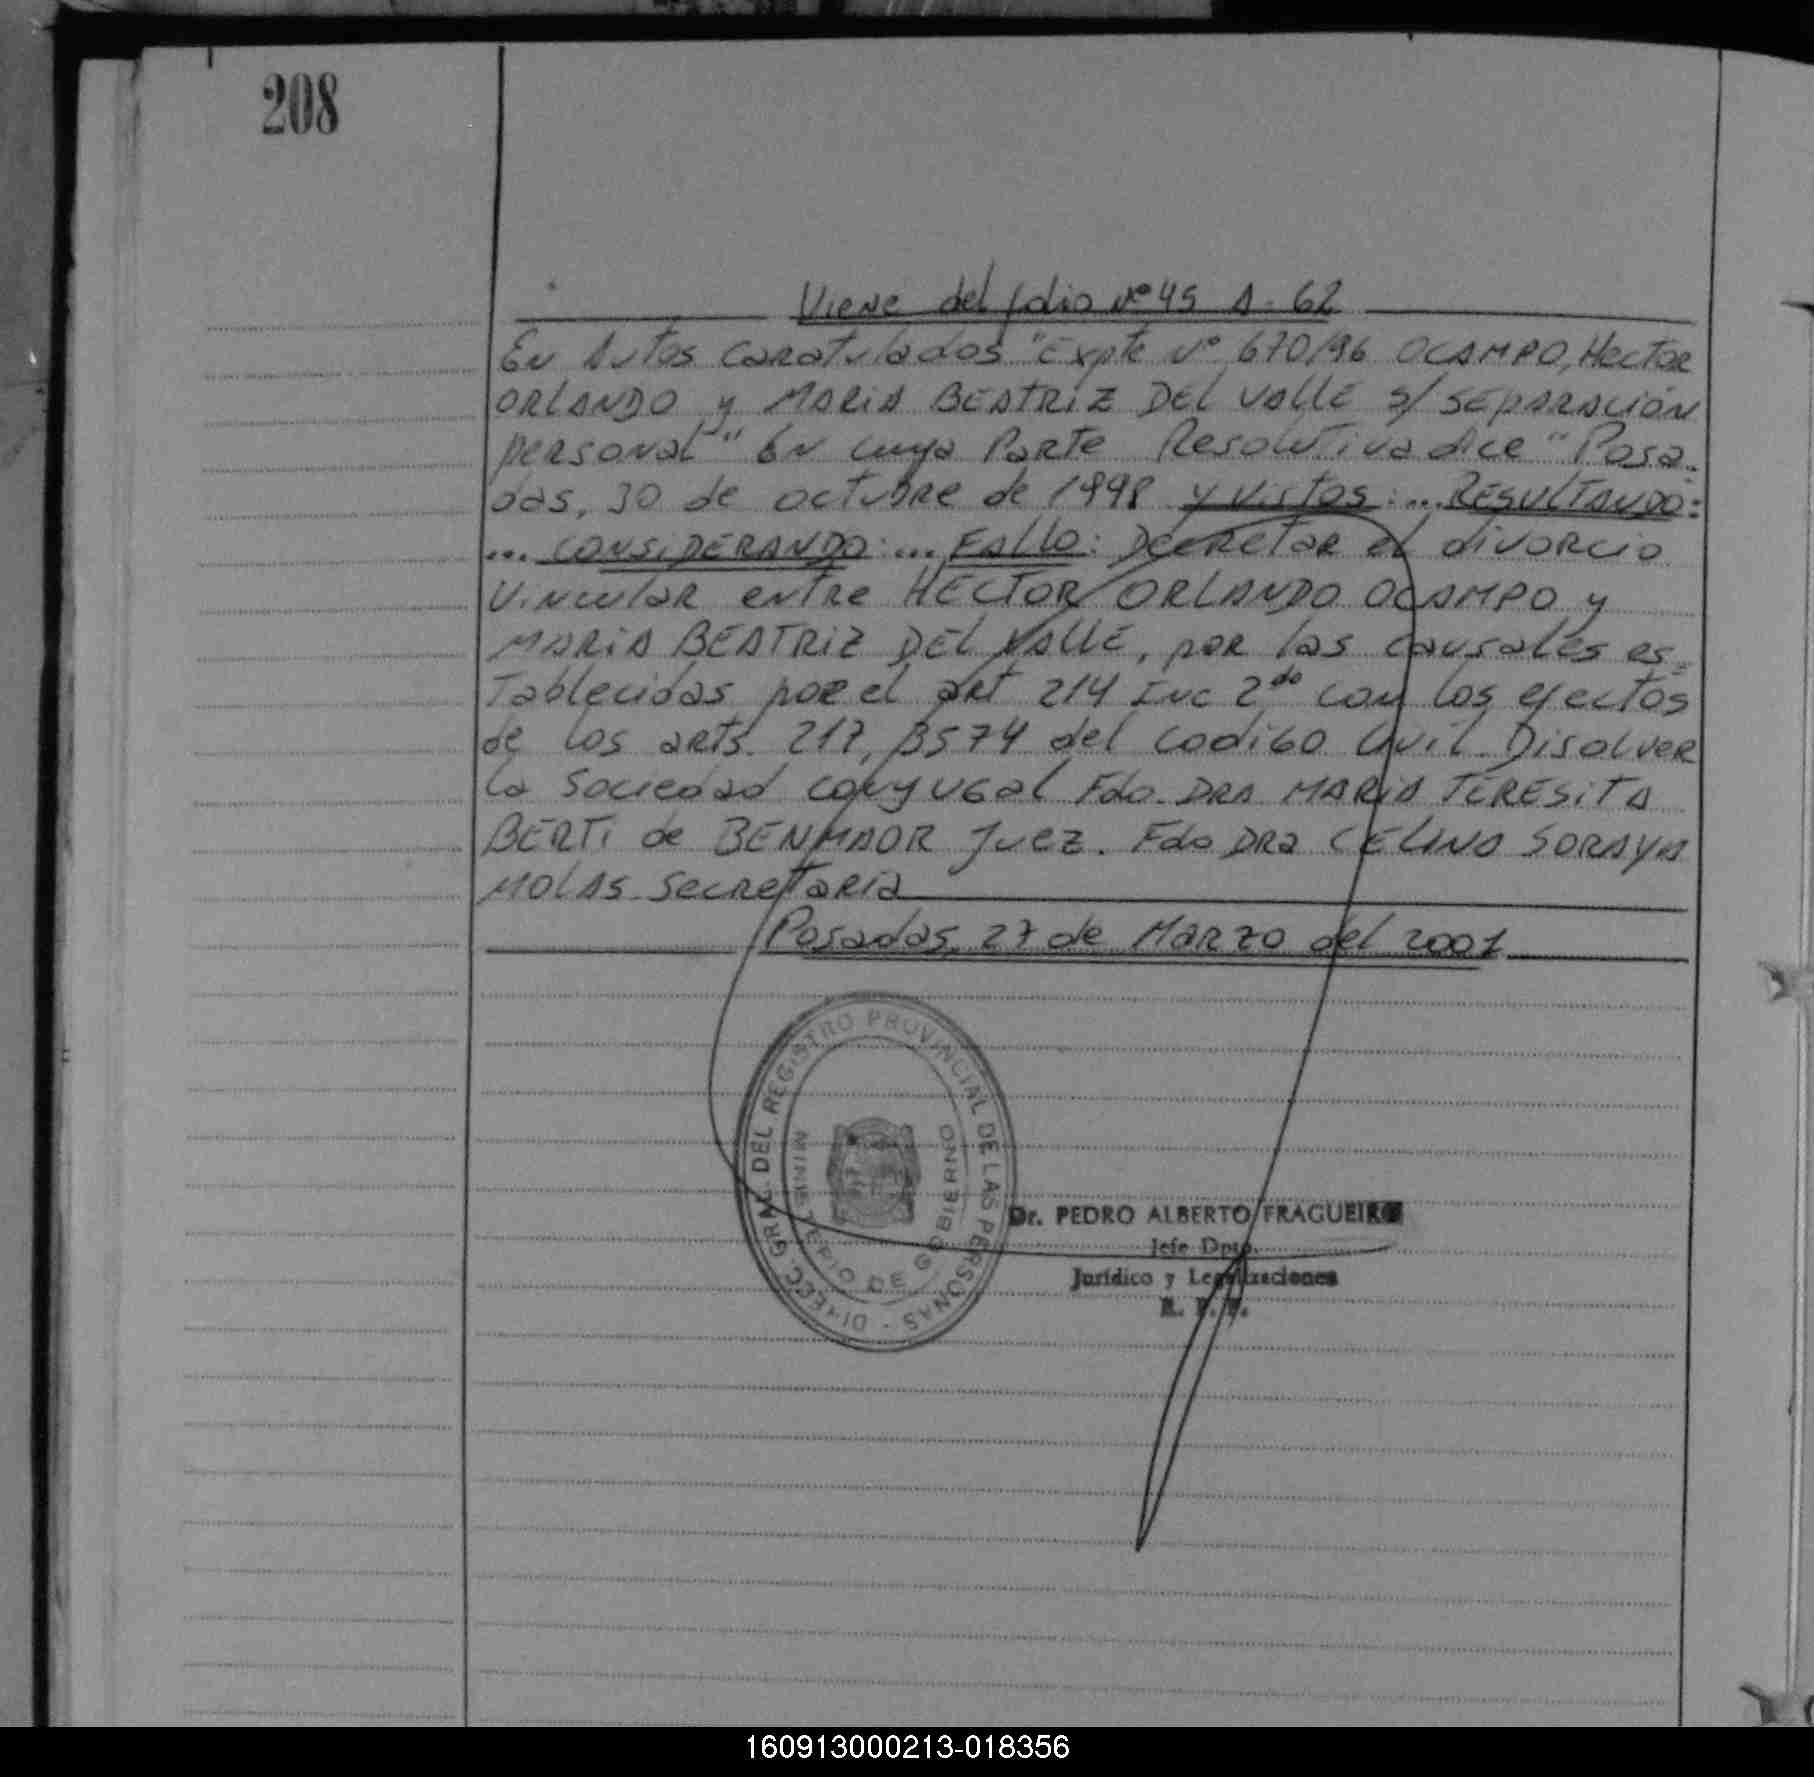 208
Viene del folio Nº 45 A. 62
En Autos caratulados "Expte Nº 670/96 OCAMPO, Hector
ORLANDO y MARIA BEATRIZ DEL VALLE s/ SEPARACIÓN
personal" En cuya Parte Resolutiva dice "Posa-
das, 30 de octubre de 1998 y vistos: ... RESULTANDO:
... CONSIDERANDO: ... FALLO: Decretar el divorcio
Vincular entre HECTOR ORLANDO OCAMPO y
MARIA BEATRIZ DEL VALLE, por las causales es=
tablecidas por el art 214 Inc 2do con los efectos
de los arts. 217, 3574 del codigo Civil. Disolver
la Sociedad conyugal Fdo. DRA MARIA TERESITA
BERTI de BENMAOR Juez. Fdo DRa CELINA SORAYA
MOLAS Secretaria
Posadas, 27 de Marzo del 2001
DIRECC. GRAL. DEL REGISTRO PROVINCIAL DE LAS PERSONAS -
MINISTERIO DE GOBIERNO
Dr. PEDRO ALBERTO FRAGUEIRO
Jefe Dpto.
Jurídico y Legalizaciones
R. P. P.
160913000213-018356